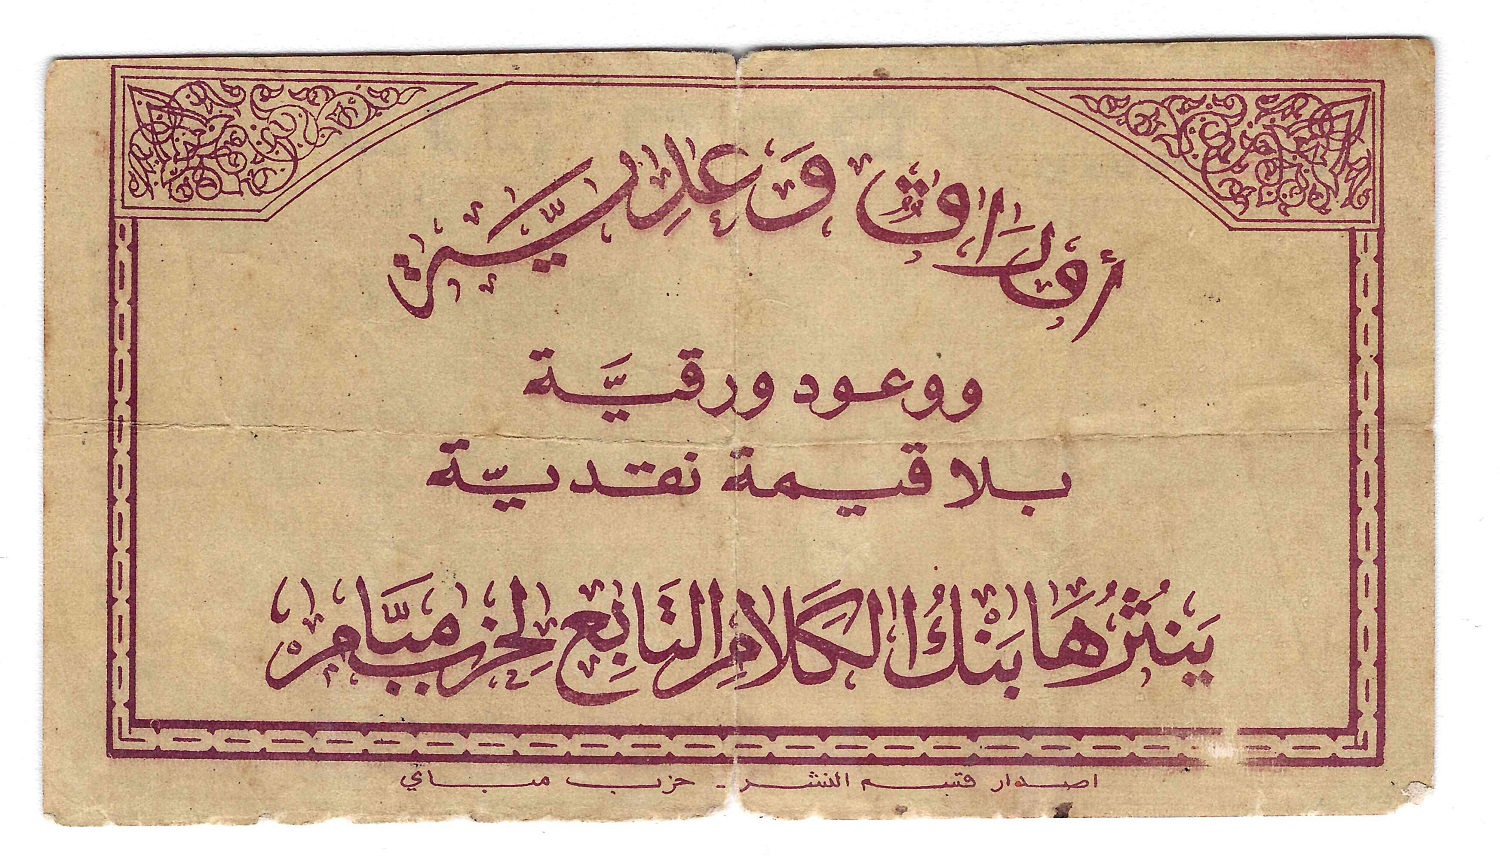 أوراقٌ وَعدِيَّة
ووعود ورقيَّة
بلا قيمة نقديّة
يَنثُرُهَا بَنْكُ الكَلامِ التَابِع لِحزب مبَّام
اصدار قسم النشر - حزب مباي